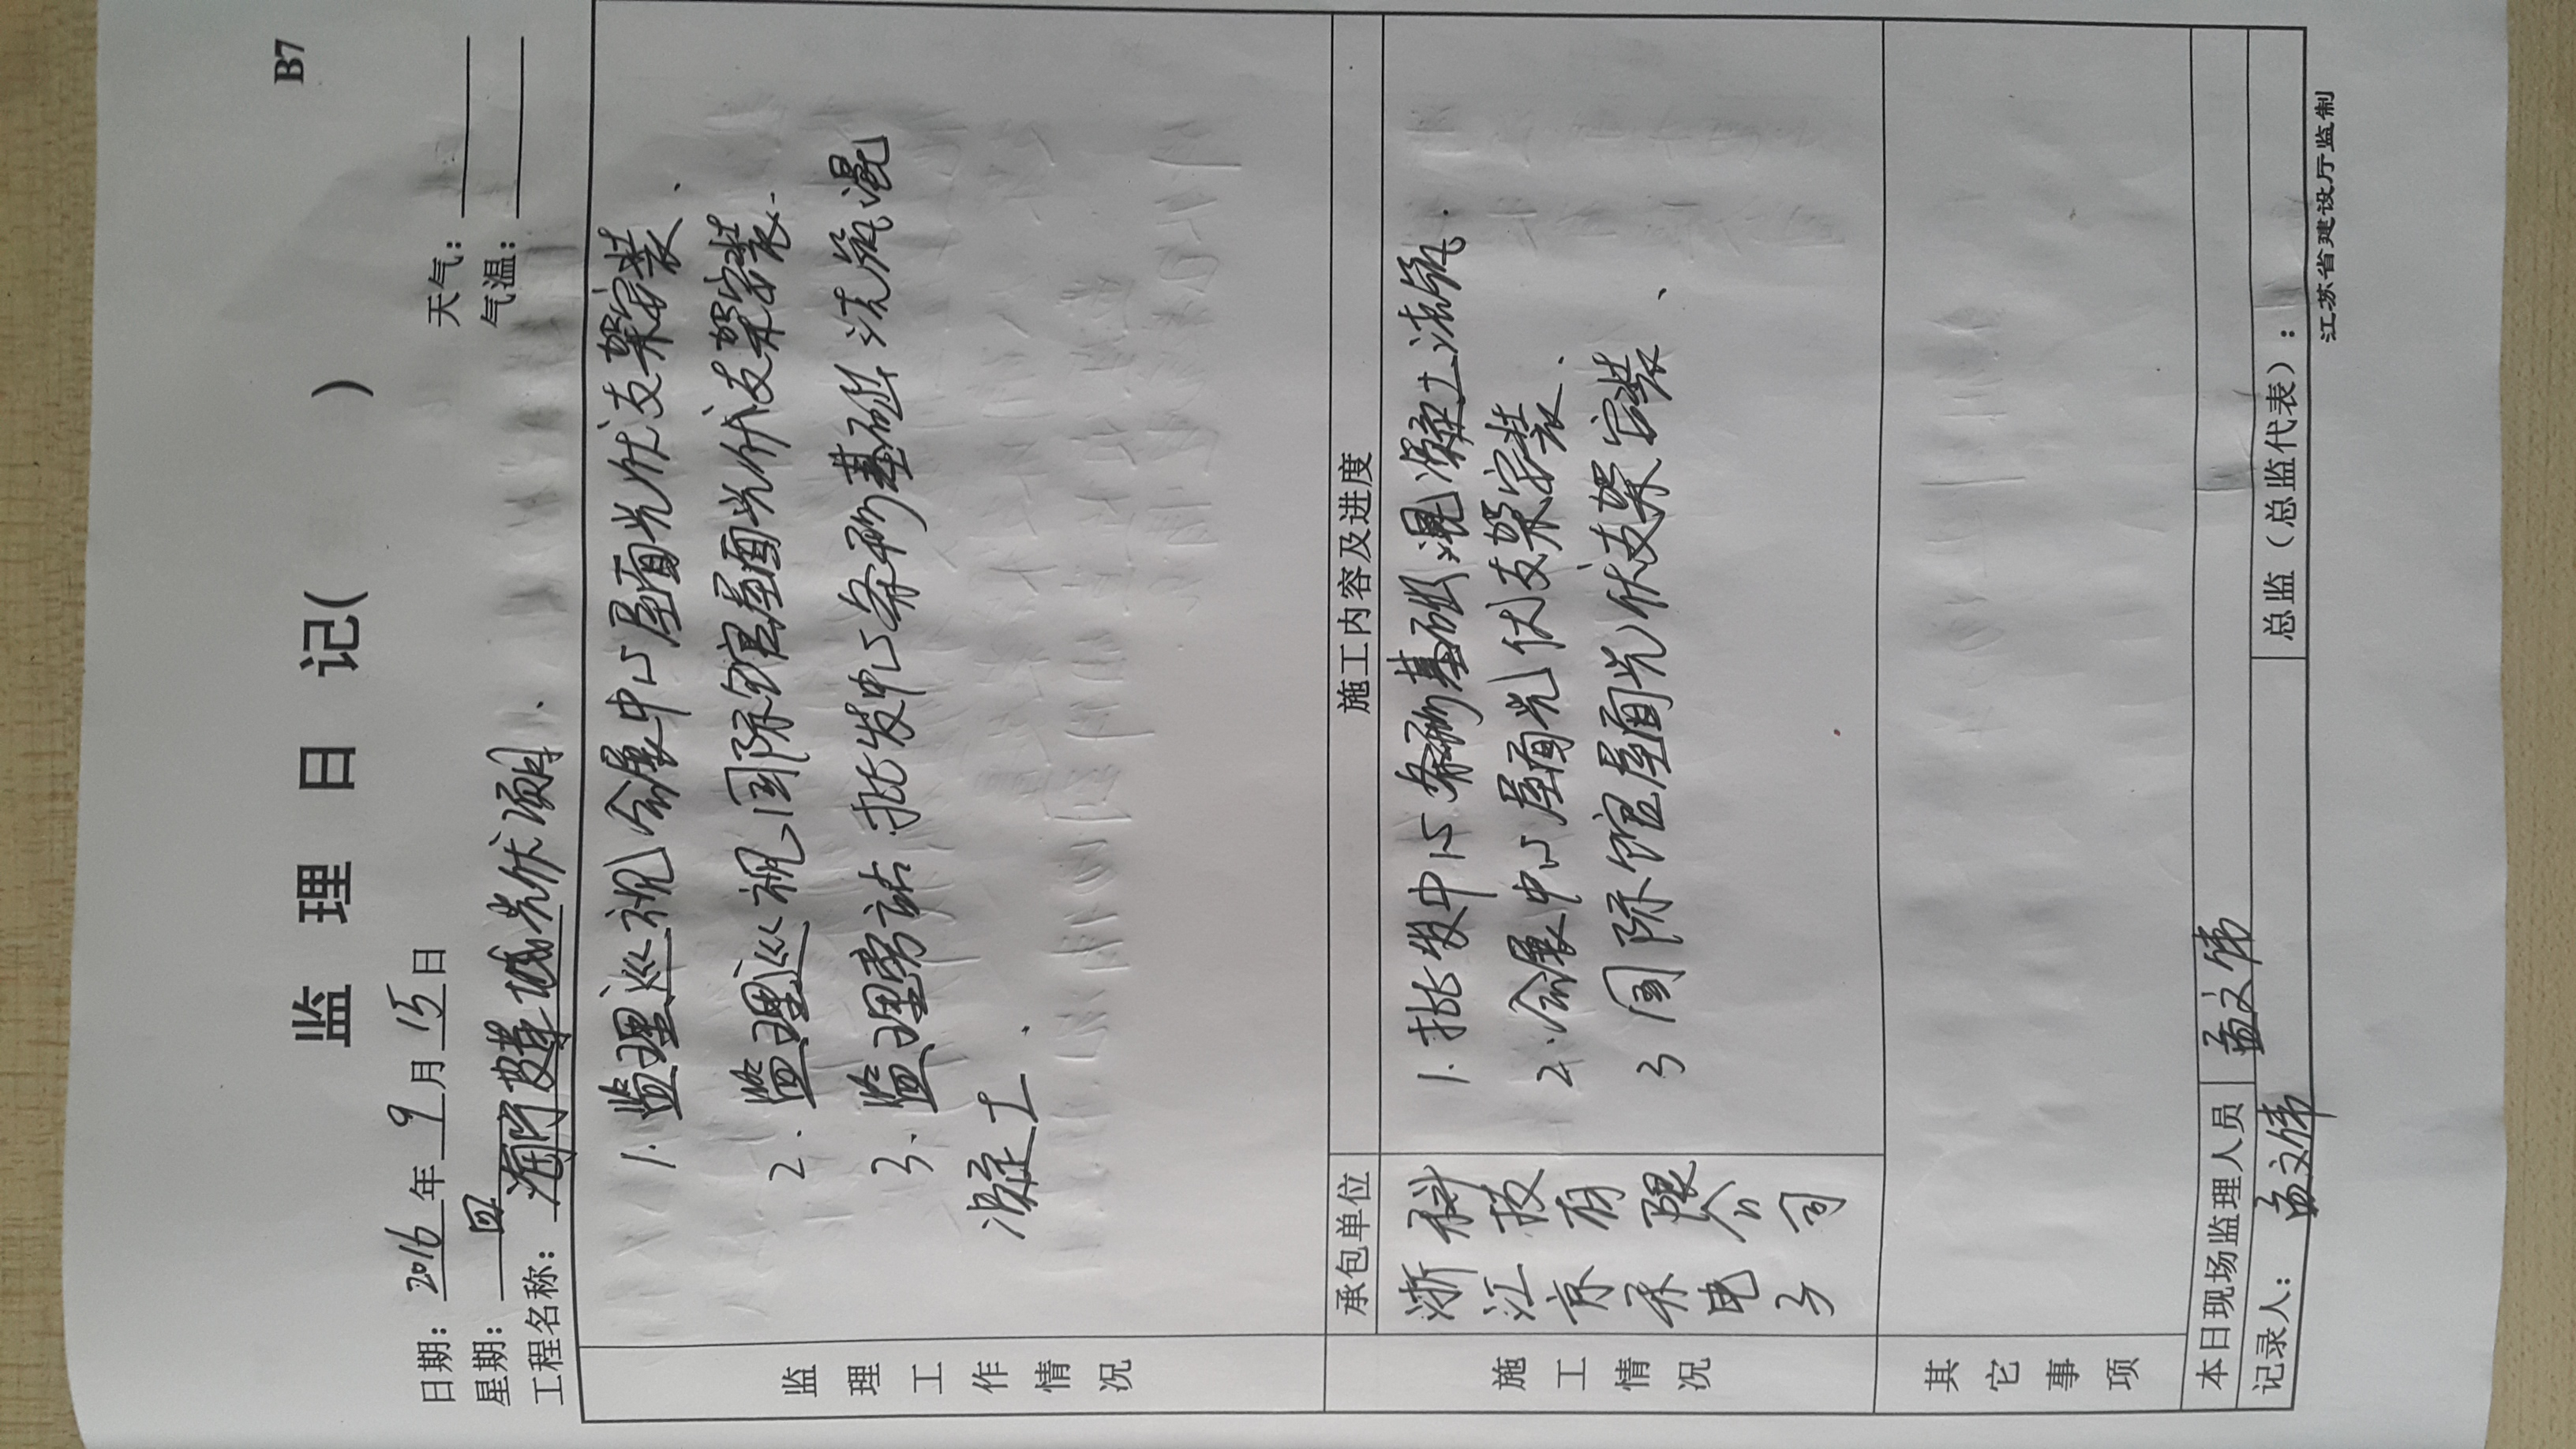 B7
监 理 日 记( )
日期：2016年9月15日 天气：
星期：四 气温：
工程名称：海宁皮革城光伏项目.
监理工作情况
1. 监理巡视会展中心屋面光伏支架安装.
2. 监理巡视国际馆屋面光伏支架安装.
3. 监理旁站批发中心条形基础浇筑混
凝土.
施工情况
承包单位 施工内容及进度
浙江京禾电子科技有限公司
1. 批发中心条形基础混凝土浇筑.
2. 会展中心屋面光伏支架安装.
3 国际馆屋面光伏支架安装、
其它事项
本日现场监理人员 孟文伟
记录人：孟文伟 总监（总监代表）：
江苏省建设厅监制